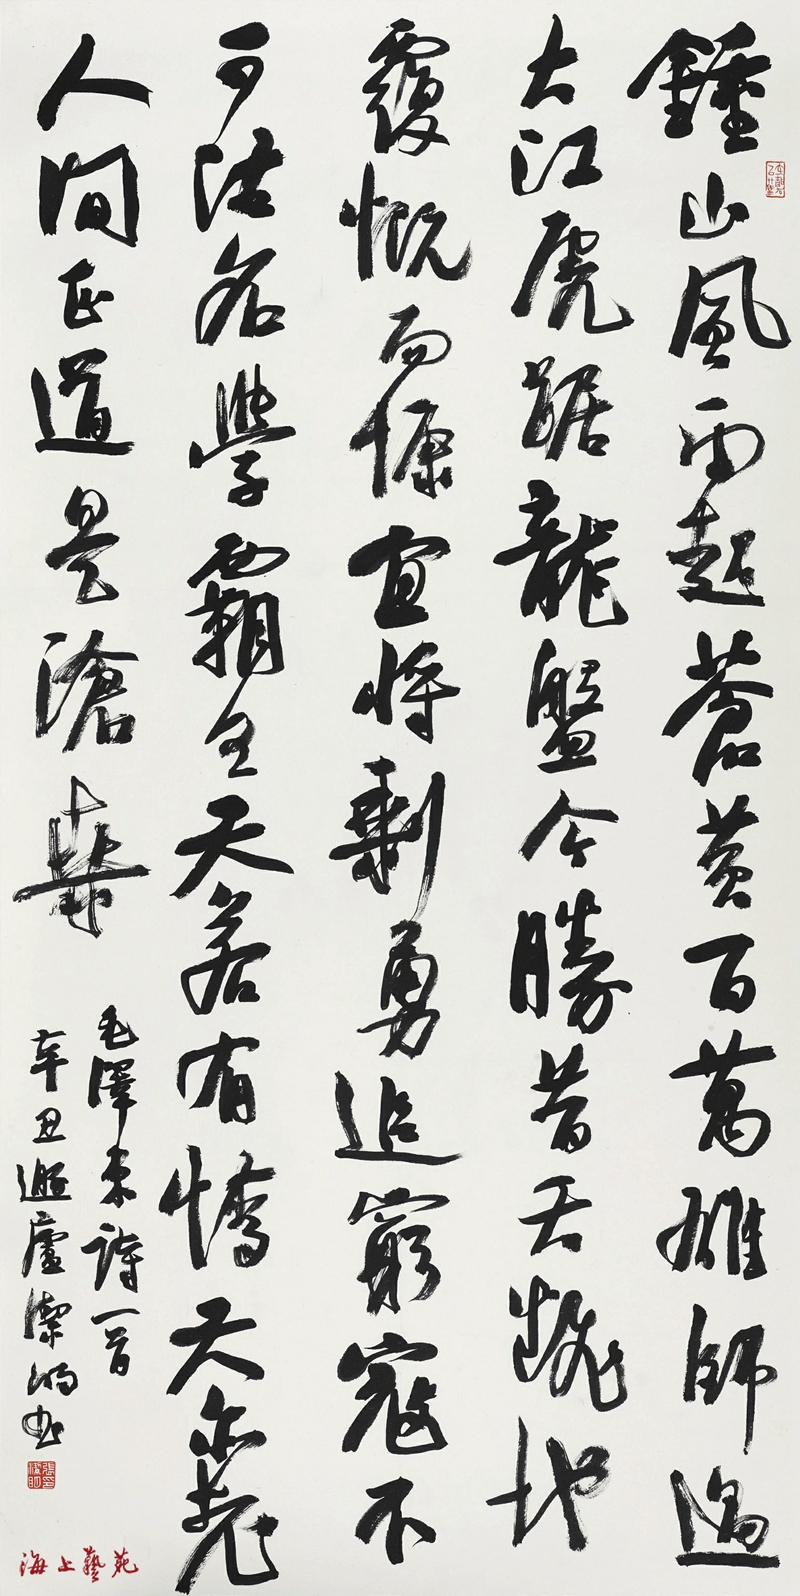 鍾山風雨起蒼黃百萬雄師過
大江虎踞龍盤今勝昔天翻地
覆慨而慷宜將剩勇追窮寇不
可沽名學霸王天若有情天亦老
人間正道是滄桑
毛澤東詩一首
辛丑廬潔明書
海上藝苑